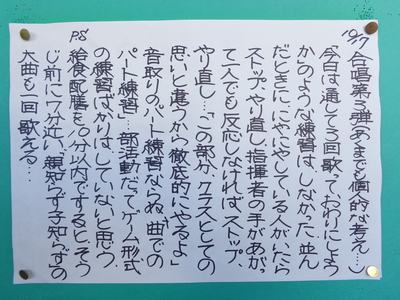 10/7
合唱第3弾(あくまでも個的な考え…)
「今日は通して3回歌っておわりにしよう
か」のような練習は、しなかった。並ん
だときに、にやにやしている人がいたら
ストップ、やり直し。指揮者の手があがっ
て一人でも反応しなければ、ストップ、
やり直し…「この部分、クラスとしての
思いと違うから徹底的にやるよ」
音取りのパート練習ならぬ、曲での
パート練習…部活動だって、ゲーム形式
の練習ばかりはしていないと思う。
P.S
給食配膳を10分以内ですると、そう
じ前に17分近い、親知らず子知らずの
大曲も一回歌える…